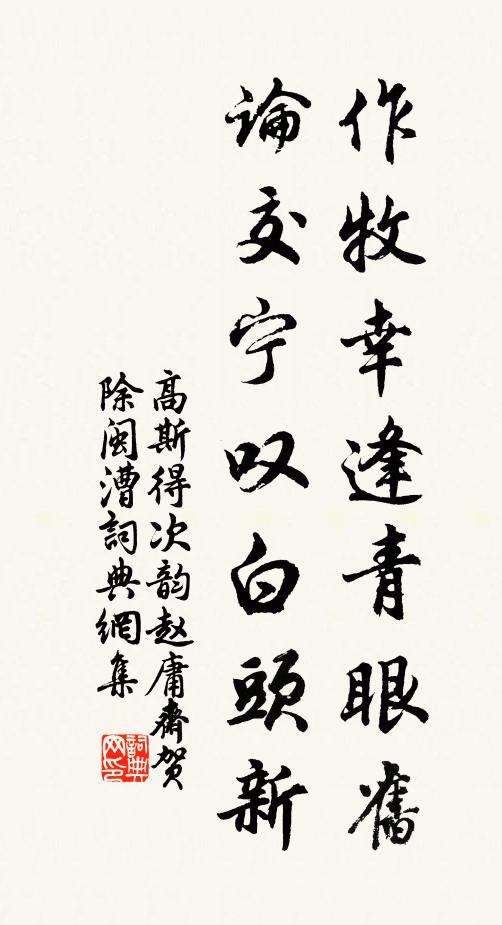 作牧幸逢青眼舊
論交宁叹白頭新
高斯得次韵赵庸齋贺
除闽漕詞典網集
詞典
网印